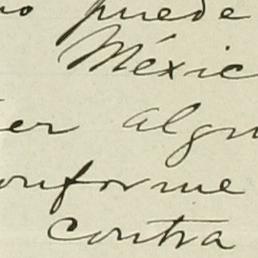 no puede
Méxic
er algu
onforme
contra